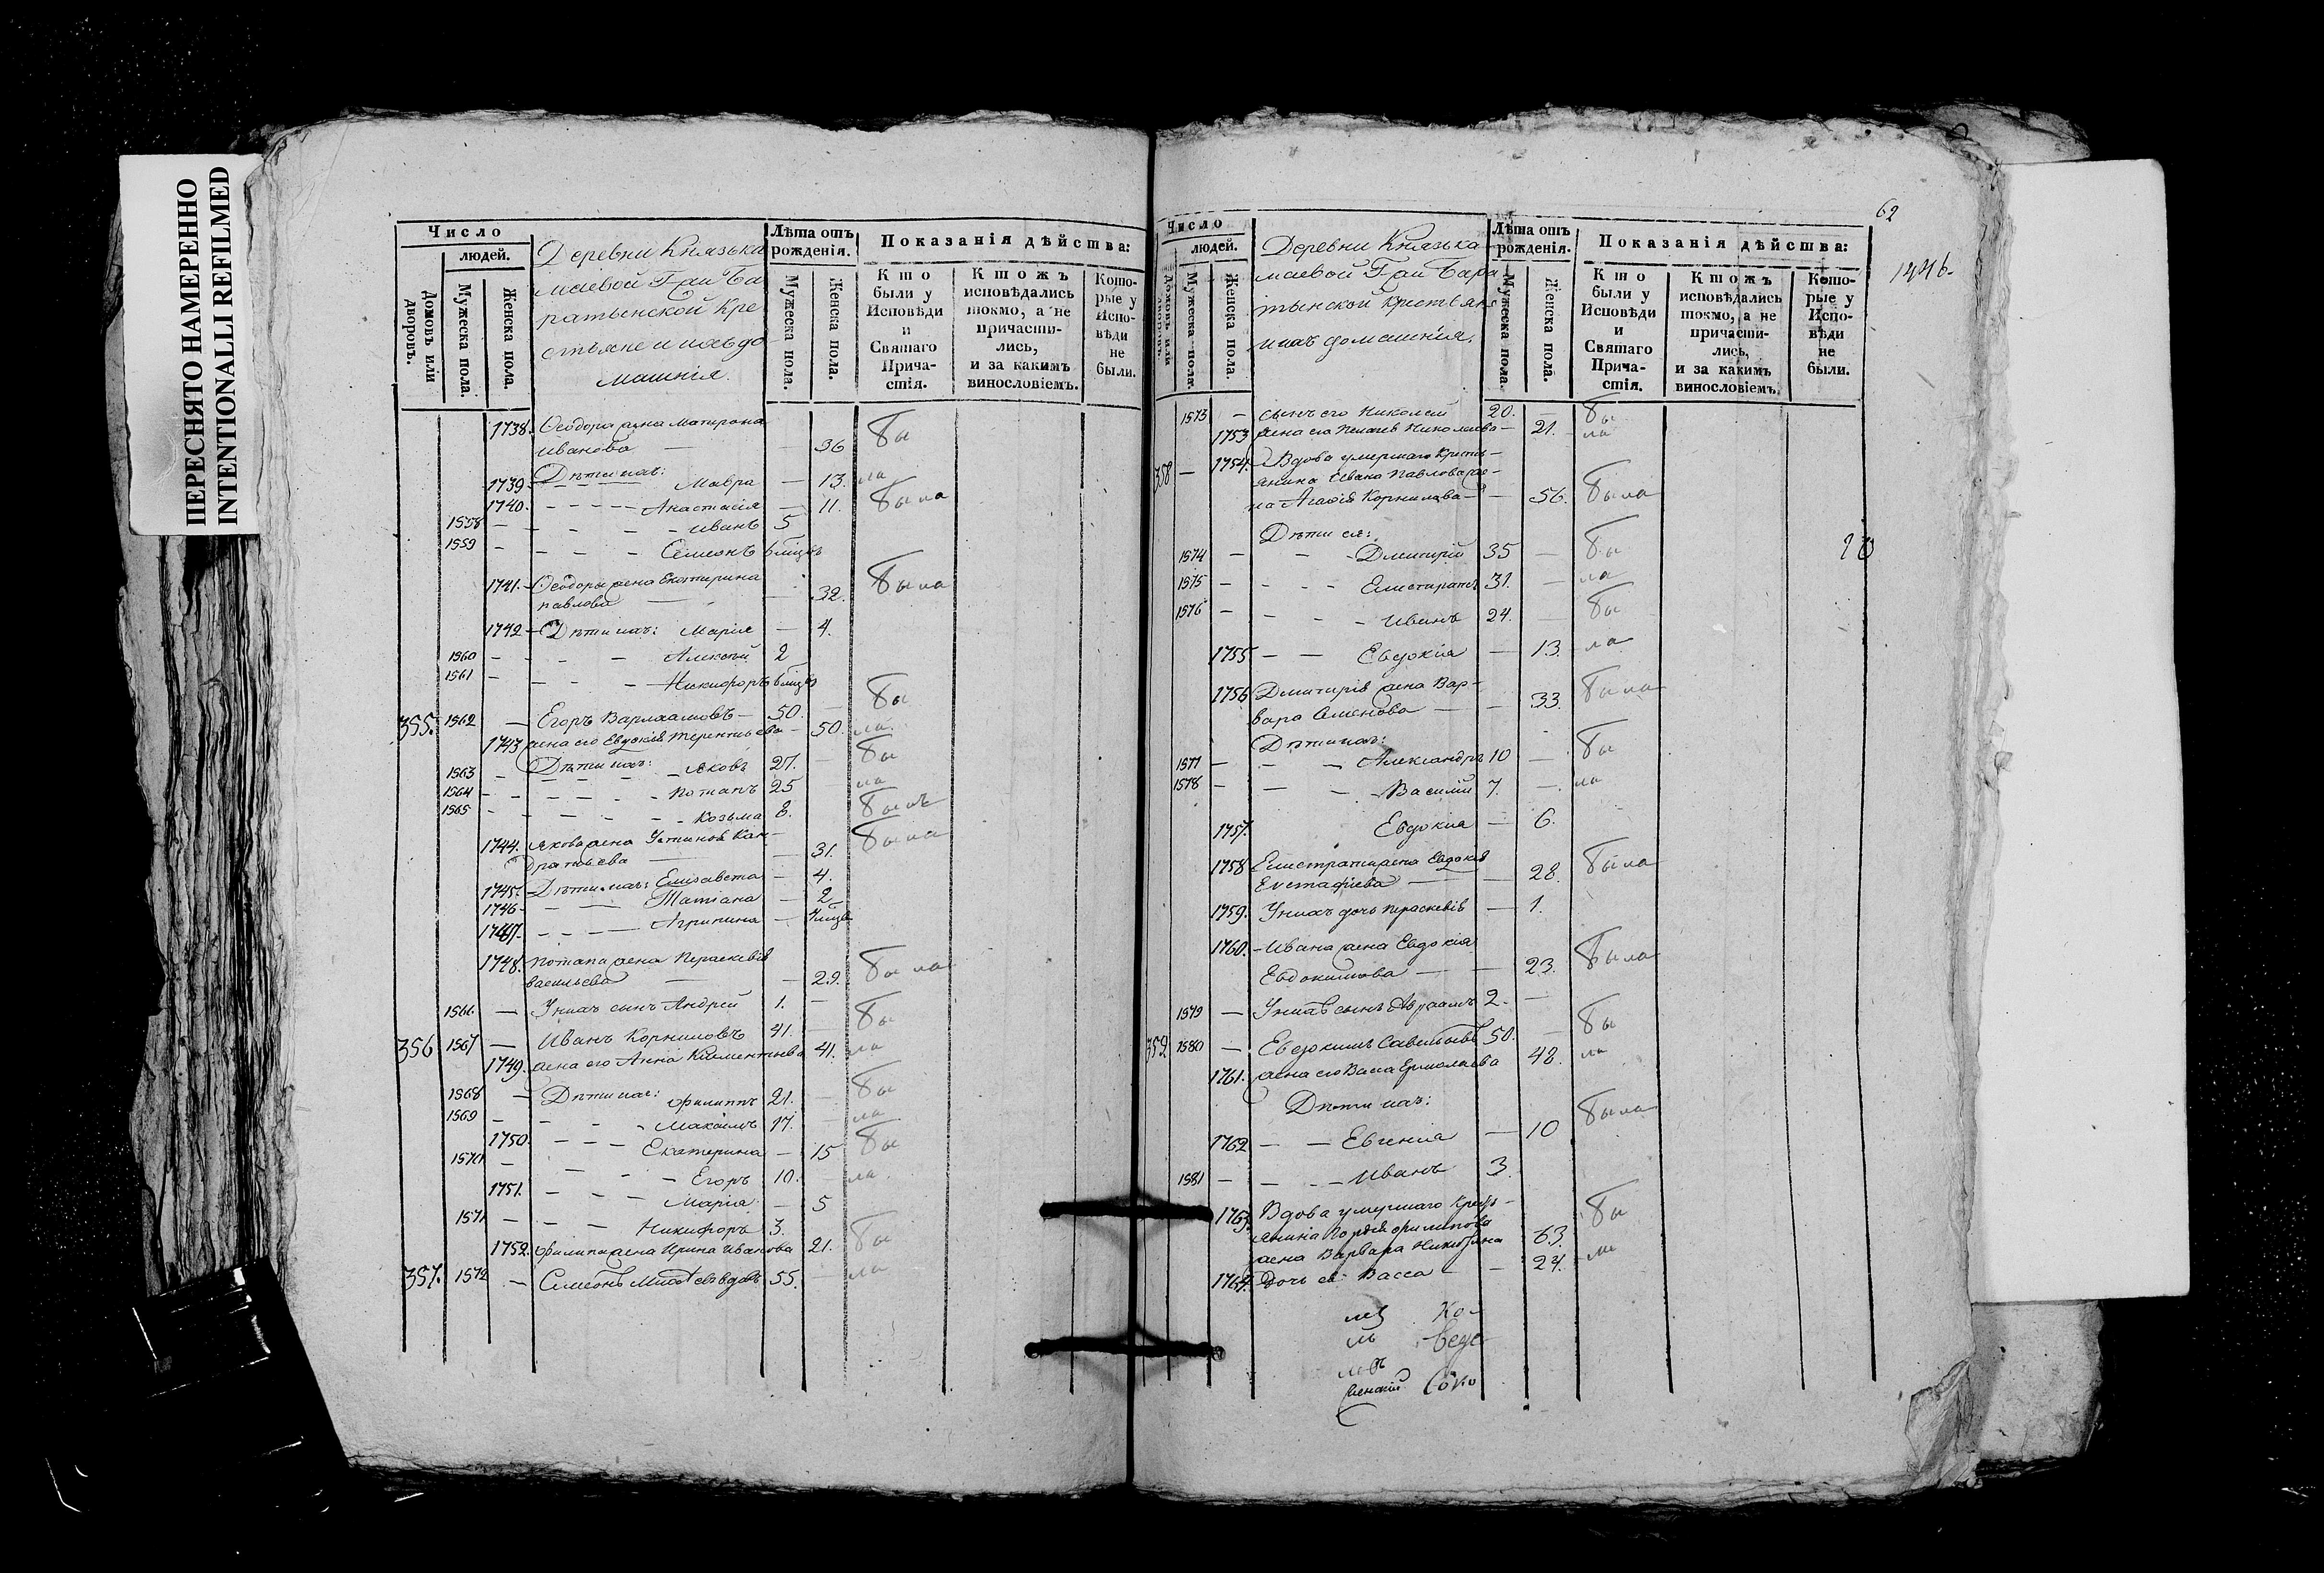 ПЕРЕСНЯТО НАМЕРЕННО
INTENTIONALLI REFILMED
Число
людей.
Домовъ или дворовъ.
Мужеска пола.
Женска пола.
Деревни Князька
маевой Гаи Ба
ратынской кре
стьяне и ихъ до
машнія.
Лѣта отъ рожденія.
Мужеска пола.
Женска пола.
Показанія дѣйства:
Кто были у Исповѣди и Святаго Причастія.
Ктожъ исповѣдались токмо, а не причастились, и за какимъ винословіемъ.
Которые у Исповѣди не были.
1738. Ѳеодора жена Матрона
Иванова — — 36 Бы
Дѣти ихъ:
1739 Мавра — 13. ла
1740. Анастасія — 11. Была
1558 — Иванъ 5
1559 — Симеонъ
1741. Ѳеодора жена Екатерина
Павлова — — 32. Была
1742 — Дѣти ихъ: Марія — 4.
1560 — Алексей 2
1561 — Никифоръ
355. 1562 — Егоръ Варлаамовъ — 50. — Бы
1743 жена его Евдокія Терентьева — 50. ла
Дѣти ихъ:
1563 — Яковъ 27. — Бы
1564 — Потапъ 25 — ла
1565 — Козьма 8. Былъ
1744. Якова жена Устинья Кан-
дратьева — — 31. Была
1745. Дѣти ихъ: Елисавета — 4.
1746 — Татіана — 2
1747. — Агрипина —
1748. Потапа жена Параскевія
Васильева — — 29. Была
1566 — У нихъ сынъ Андрей 1. —
356 1567 — Иванъ Корниловъ 41. — Бы
1749. жена его Анна Климентьева 41. ла
1568 — Дѣти ихъ: Филиппъ 21. — Бы
1569 — Максимъ 17. — ла
1750. — Екатерина — 15 Бы
1570 — Егоръ 10. — ла
1751. — Марія — 5
1571 — Никифоръ 3.
1752. Филипа жена Ирина Иванова 21. Бы
357. 1572 — Симеонъ вдовъ 55. — ла
62
1446.
Число
людей.
Домовъ или дворовъ.
Мужеска пола.
Женска пола.
Деревни Князька
маевой Гаи Бара
тынской крестьяне
и ихъ домашнія.
Лѣта отъ рожденія.
Мужеска пола.
Женска пола.
Показанія дѣйства:
Кто были у Исповѣди и Святаго Причастія.
Ктожъ исповѣдались токмо, а не причастились, и за какимъ винословіемъ.
Которые у Исповѣди не были.
1573 — сынъ его Николай 20. — Бы
1753 жена его Николаева — 21. ла
358 — 1754. Вдова умершаго кресть-
янина Ивана Павлова же-
на Агафія Корнилова — — 56. Была
Дѣти ея:
1574 — Дмитрій 35 — Бы
1575 — Елистратъ 31. — ла
1576 — Иванъ 24. — Бы
1755 — Евдокіа — 13. ла
1756 Дмитрія жена Вар-
вара Симеонова — — 33. Была
Дѣти ихъ:
1577 — Александръ 10 — Бы
1578 — Василій 7. — ла
1757. Евдокіа — 6.
1758 Елистрата жена Евдокія
Евстафіева — — 28. Была
1759. У нихъ дочь Параскевія — 1.
1760. Ивана жена Евдокіа
Евдокимова — — 23. Была
1579 — У нихъ сынъ Авраамъ 2. —
359 1580 — Евдокимъ Савельевъ 50. — Бы
1761. жена его Васса Ермолаева 48. ла
Дѣти ихъ:
1762 — Евгеніа — 10 Была
1581 — Иванъ 3.
1763. Вдова умершаго кресть-
янина Гордея Филипова
жена Варвара Никитина 63. Бы
1764. Дочь ея Васса — — 24. ла